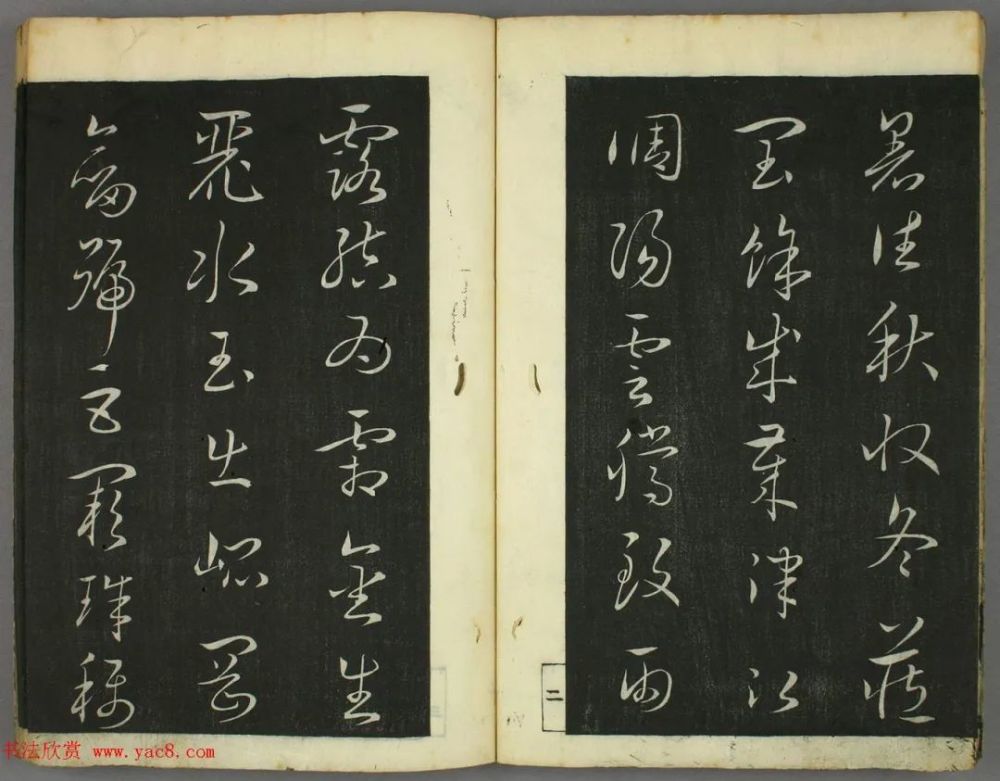 暑往秋收冬藏
閏餘成歲律呂
調陽雲騰致雨
露結為霜金生
麗水玉出崐岡
劍號巨闕珠稱
二
书法欣赏 www.yac8.com